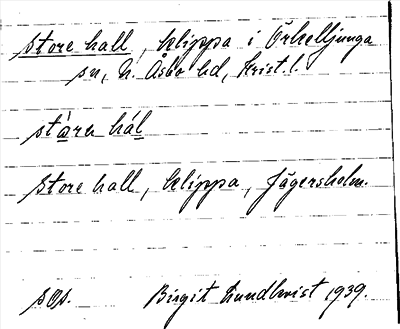 store hall, klippa i Örkelljunga
sn, N. Åsbo hd, Krist. l.
stàra hál
Store hall, klippa, Jägersholm.
sOp. Birgit Lundkvist 1939.